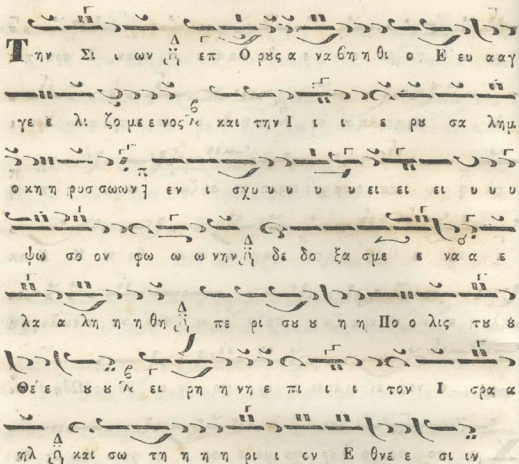 Την Σι ι ων Δ επ Ο ρȣς α να βη η θι ο Ε ευ ααγ
γε ε λι ζο με ε νος και την Ι ι ι ε ρȣ σα λημ
ο κη η ρυσ σωων π εν ι σχυ υ υ υ υ ει ει ει υ υ υ
ψω σο ον φω ω ω νην Δ δε δο ξα σμε ε να α ε
λα α λη η η θη Δ πε ρι σȣ ȣ η η Πο ο λις τȣ ȣ
Θε ε ȣ ȣ ει ρη η νη ε πι ι ι τον Ι σρα α
ηλ Δ και σω τη η η η ρι ι ον Ε θνε ε σι ιν